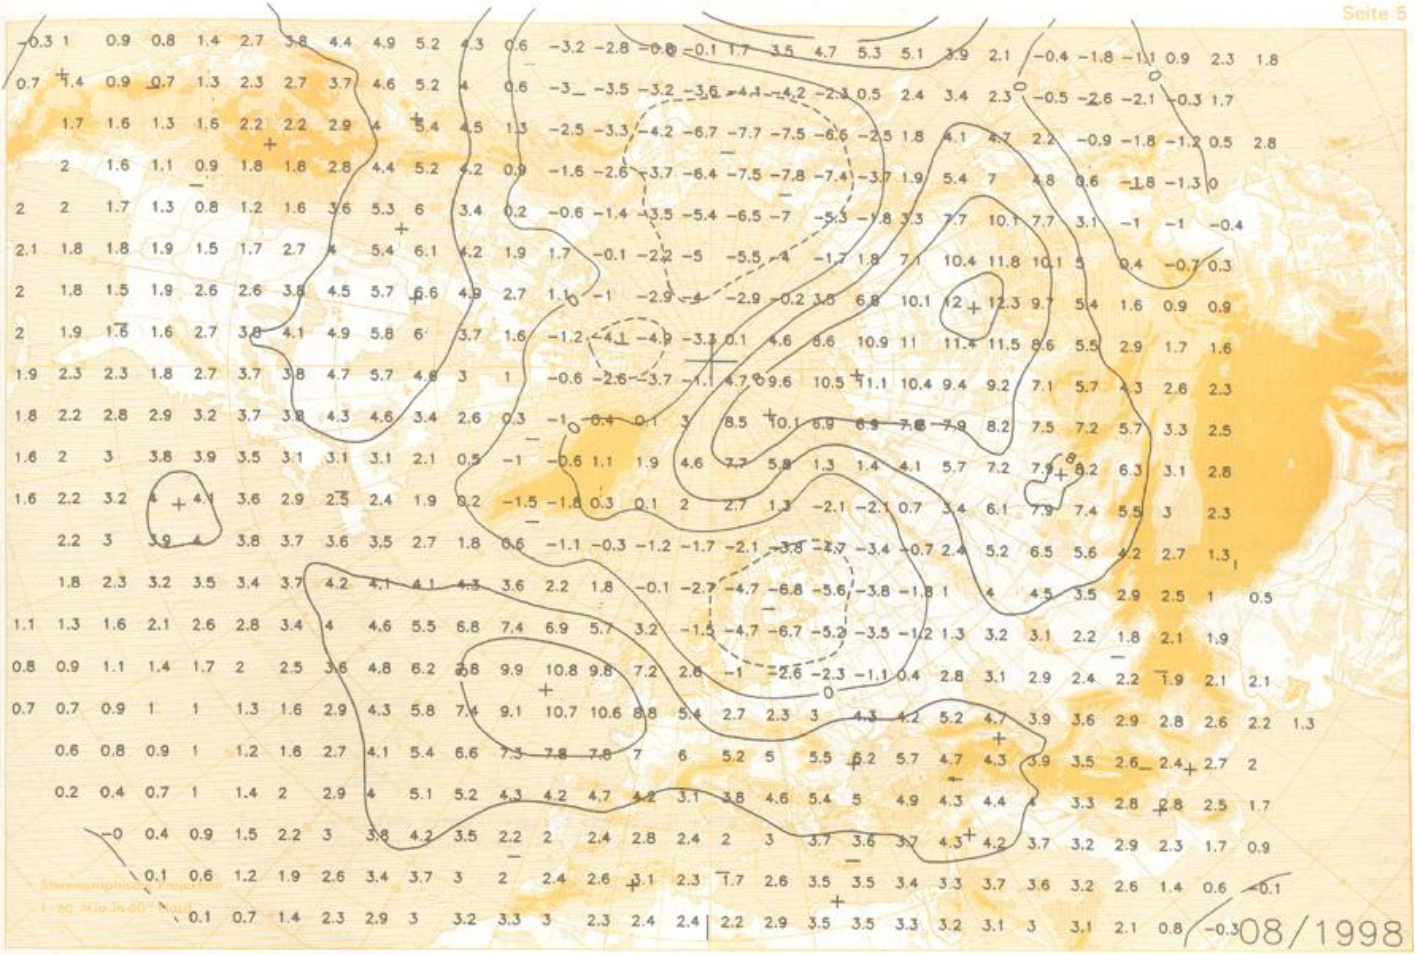 Seite 5
-0.3 1 0.9 0.8 1.4 2.7 3.8 4.4 4.9 5.2 4.3 0.6 -3.2 -2.8 -0.8 -0.1 1.7 3.5 4.7 5.3 5.1 3.9 2.1 -0.4 -1.8 -1.1 0.9 2.3 1.8
0.7 1.4 0.9 0.7 1.3 2.3 2.7 3.7 4.6 5.2 4 0.6 -3 -3.5 -3.2 -3.6 -4.1 -4.2 -2.3 0.5 2.4 3.4 2.3 0 -0.5 -2.6 -2.1 0 -0.3 1.7
1.7 1.6 1.3 1.6 2.2 2.2 2.9 4 5.4 4.5 1.3 -2.5 -3.3 -4.2 -6.7 -7.7 -7.5 -6.6 -2.5 1.8 4.1 4.7 2.2 -0.9 -1.8 -1.2 0.5 2.8
2 1.6 1.1 0.9 1.8 1.8 2.8 4.4 5.2 4.2 0.9 -1.6 -2.6 -3.7 -6.4 -7.5 -7.8 -7.4 -3.7 1.9 5.4 7 4.8 0.6 -1.8 -1.3 0
2 2 1.7 1.3 0.8 1.2 1.6 3.6 5.3 6 3.4 0.2 -0.6 -1.4 -3.5 -5.4 -6.5 -7 -5.3 -1.8 3.3 7.7 10.1 7.7 3.1 -1 -1 -0.4
2.1 1.8 1.8 1.9 1.5 1.7 2.7 4 5.4 6.1 4.2 1.9 1.7 -0.1 -2.2 -5 -5.5 -4 -1.7 1.8 7.1 10.4 11.8 10.1 5 0.4 -0.7 0.3
2 1.8 1.5 1.9 2.6 2.6 3.8 4.5 5.7 6.6 4.9 2.7 1.1 0 -1 -2.9 -4 -2.9 -0.2 3.5 6.8 10.1 12 12.3 9.7 5.4 1.6 0.9 0.9
2 1.9 1.6 1.6 2.7 3.8 4.1 4.9 5.8 6 3.7 1.6 -1.2 -4.1 -4.9 -3.3 0.1 4.6 8.6 10.9 11 11.4 11.5 8.6 5.5 2.9 1.7 1.6
1.9 2.3 2.3 1.8 2.7 3.7 3.8 4.7 5.7 4.6 3 1 -0.6 -2.6 -3.7 -1.1 4.7 9.6 10.5 11.1 10.4 9.4 9.2 7.1 5.7 4.3 2.6 2.3
1.8 2.2 2.8 2.9 3.2 3.7 3.8 4.3 4.6 3.4 2.6 0.3 -1 0 0.4 0.1 3 8.5 10.1 6.9 6.9 7.8 7.9 8.2 7.5 7.2 5.7 3.3 2.5
1.6 2 3 3.8 3.9 3.5 3.1 3.1 3.1 2.1 0.5 -1 -0.6 1.1 1.9 4.6 7.7 5.8 1.3 1.4 4.1 5.7 7.2 7.9 8 8.2 6.3 3.1 2.8
1.6 2.2 3.2 4 4.1 3.6 2.9 2.5 2.4 1.9 0.2 -1.5 -1.8 0.3 0.1 2 2.7 1.3 -2.1 -2.1 0.7 3.4 6.1 7.9 7.4 5.5 3 2.3
2.2 3 3.9 4 3.8 3.7 3.6 3.5 2.7 1.8 0.6 -1.1 -0.3 -1.2 -1.7 -2.1 -3.8 -4.7 -3.4 -0.7 2.4 5.2 6.5 5.6 4.2 2.7 1.3
1.8 2.3 3.2 3.5 3.4 3.7 4.2 4.1 4.1 4.3 3.6 2.2 1.8 -0.1 -2.7 -4.7 -6.8 -5.6 -3.8 -1.8 1 4 4.5 3.5 2.9 2.5 1 0.5
1.1 1.3 1.6 2.1 2.6 2.8 3.4 4 4.6 5.5 6.8 7.4 6.9 5.7 3.2 -1.5 -4.7 -6.7 -5.2 -3.5 -1.2 1.3 3.2 3.1 2.2 1.8 2.1 1.9
0.8 0.9 1.1 1.4 1.7 2 2.5 3.6 4.8 6.2 7.8 9.9 10.8 9.8 7.2 2.6 -1 -2.6 -2.3 -1.1 0.4 2.8 3.1 2.9 2.4 2.2 1.9 2.1 2.1
0
0.7 0.7 0.9 1 1 1.3 1.6 2.9 4.3 5.8 7.4 9.1 10.7 10.6 8.8 5.4 2.7 2.3 3 4.3 4.2 5.2 4.7 3.9 3.6 2.9 2.8 2.6 2.2 1.3
0.6 0.8 0.9 1 1.2 1.6 2.7 4.1 5.4 6.6 7.3 7.8 7.8 7 6 5.2 5 5.5 6.2 5.7 4.7 4.3 3.9 3.5 2.6 2.4 2.7 2
0.2 0.4 0.7 1 1.4 2 2.9 4 5.1 5.2 4.3 4.2 4.7 4.2 3.1 3.8 4.6 5.4 5 4.9 4.3 4.4 4 3.3 2.8 2.8 2.5 1.7
-0 0.4 0.9 1.5 2.2 3 3.8 4.2 3.5 2.2 2 2.4 2.8 2.4 2 3 3.7 3.6 3.7 4.3 4.2 3.7 3.2 2.9 2.3 1.7 0.9
0.1 0.6 1.2 1.9 2.6 3.4 3.7 3 2 2.4 2.6 3.1 2.3 1.7 2.6 3.5 3.5 3.4 3.3 3.7 3.6 3.2 2.6 1.4 0.6 -0.1
Stereographische Projektion
0.1 0.7 1.4 2.3 2.9 3 3.2 3.3 3 2.3 2.4 2.4 2.2 2.9 3.5 3.5 3.3 3.2 3.1 3 3.1 2.1 0.8 -0.3
08/1998